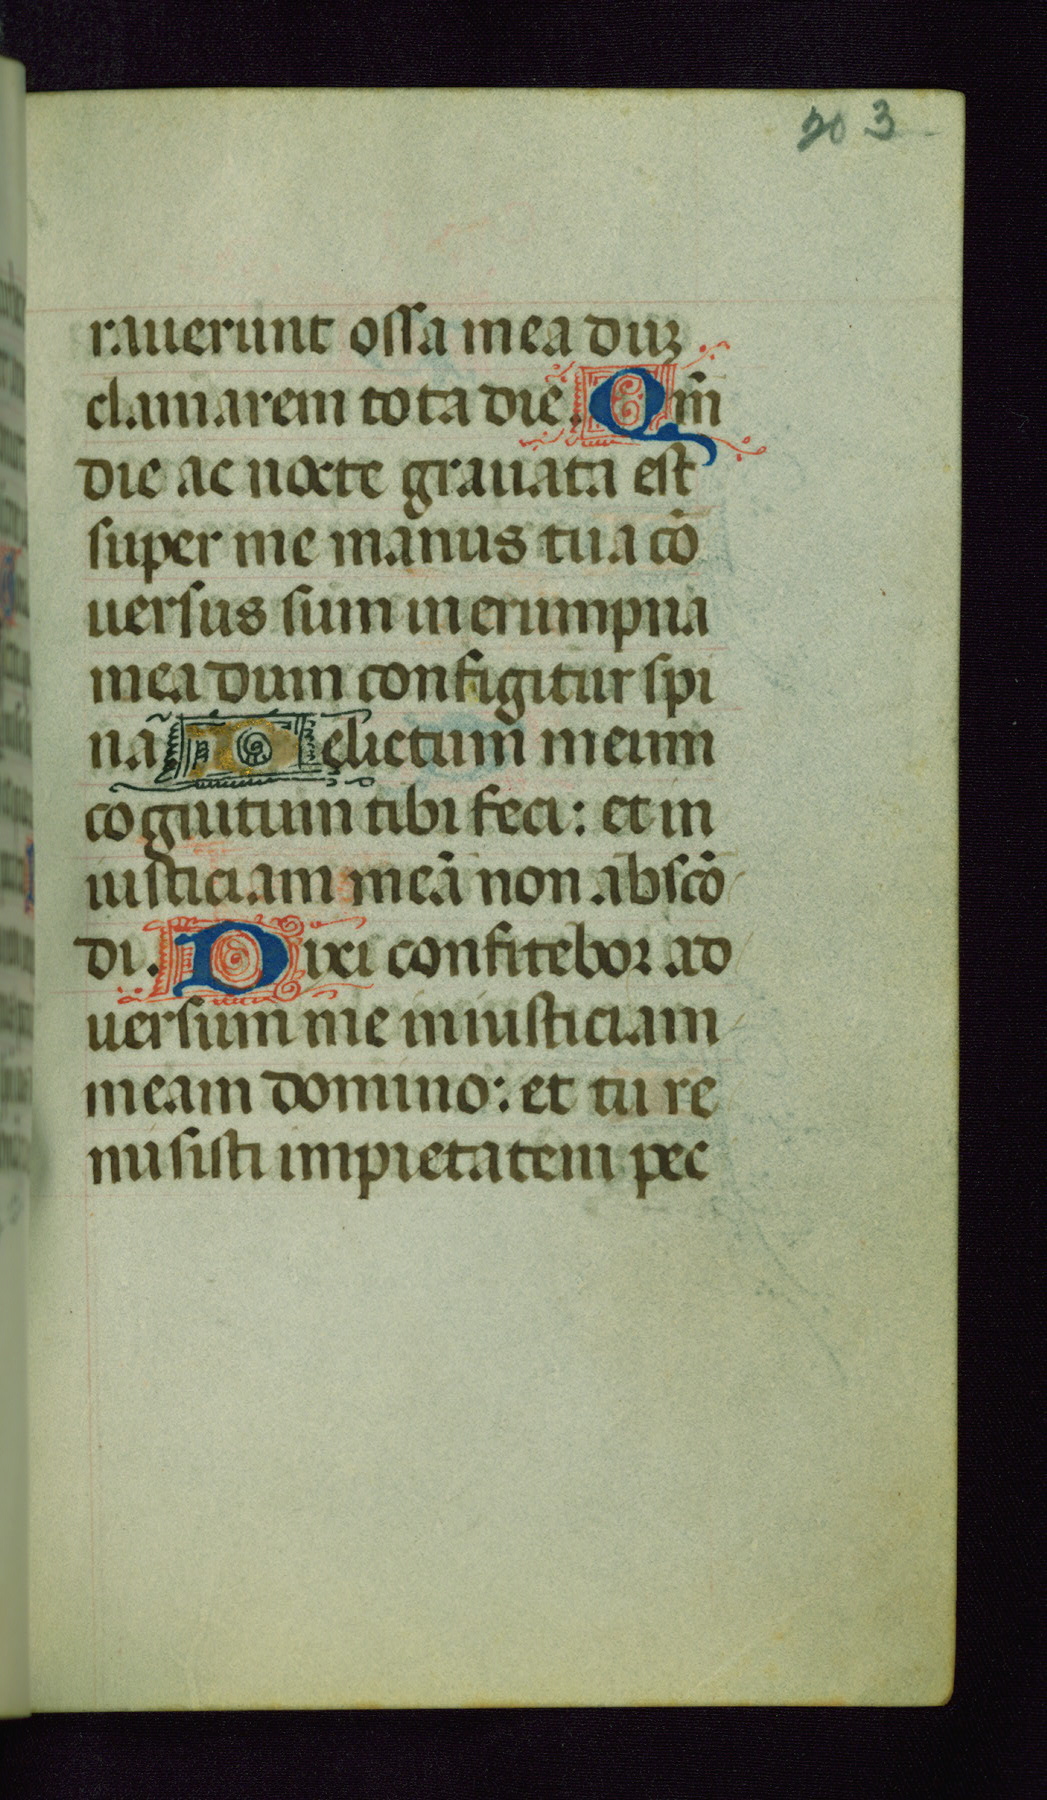 203
rauerunt ossa mea duz
clamarem tota die. Qm̄
die ac nocte grauata est
super me manus tua cō
uersus sum in erumpna
mea dum configitur spi
na Delictum meum
cognitum tibi feci: et in
iusticiam meā non abscō
di. Dixi confitebor ad
uersum me iniusticiam
meam domino: et tu re
misisti impietatem pec